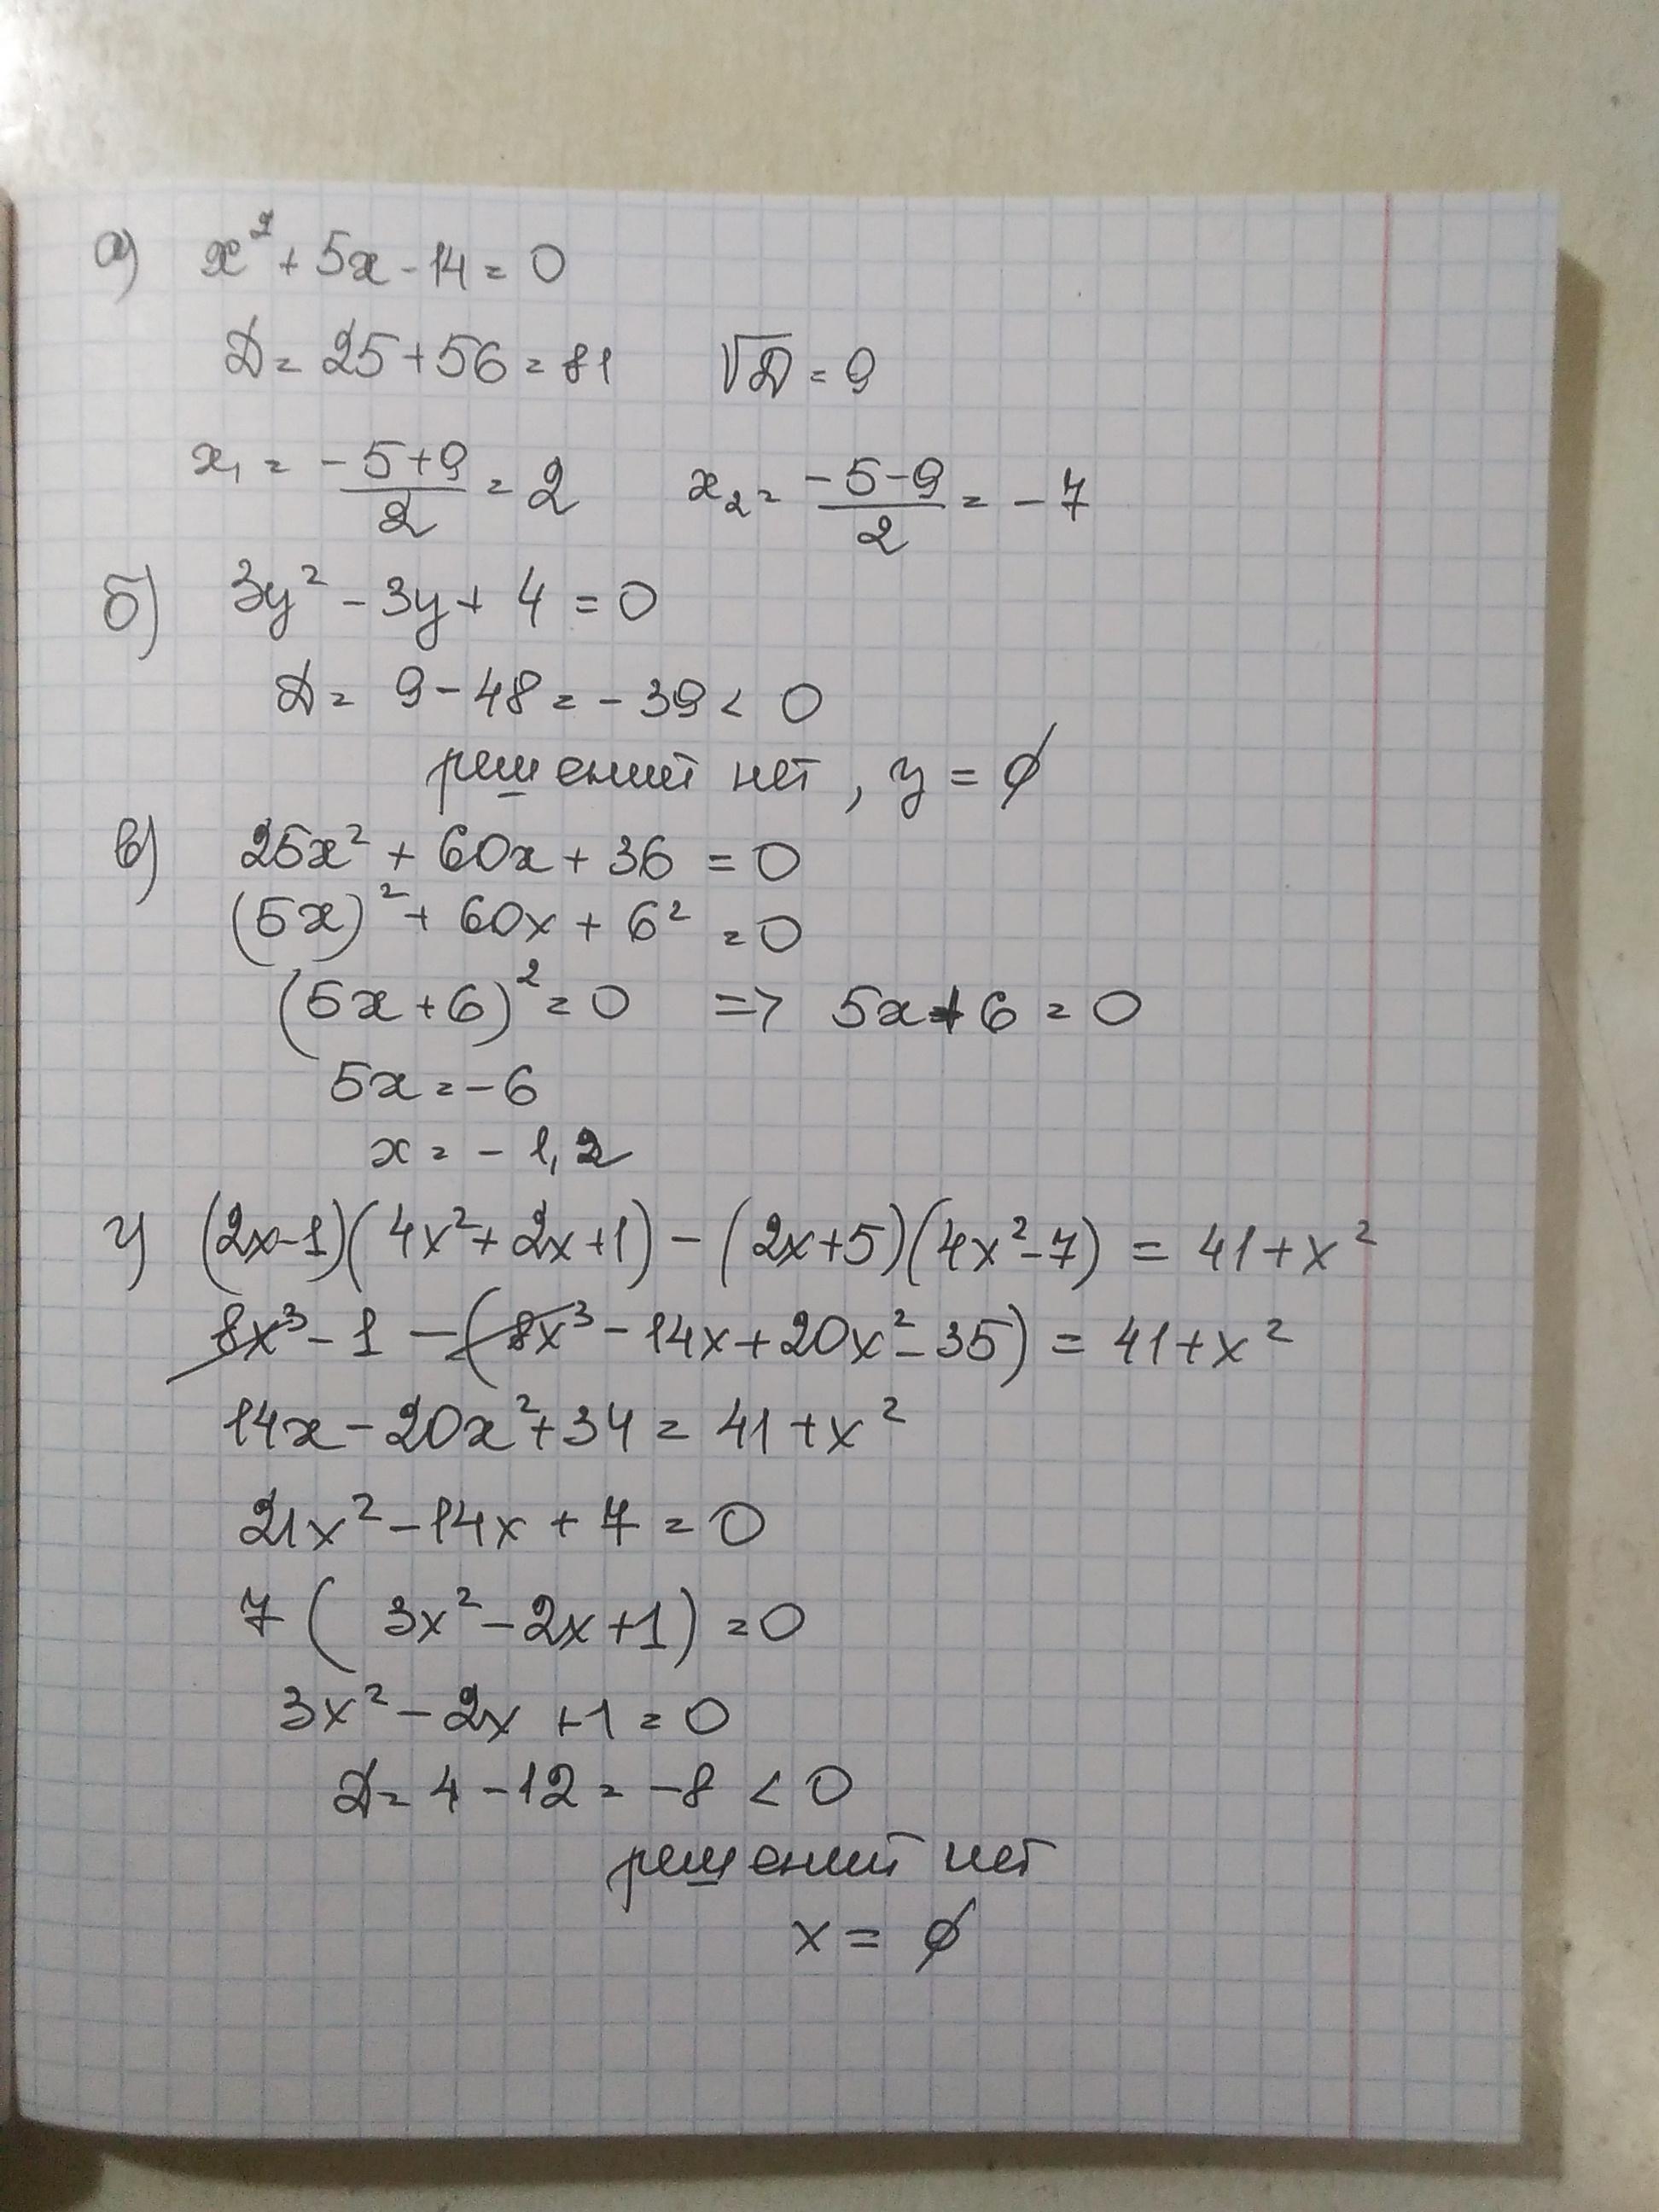 а) x² + 5x - 14 = 0
D = 25 + 56 = 81 √D = 9
x₁ = (-5+9)/2 = 2 x₂ = (-5-9)/2 = -7
б) 3y² - 3y + 4 = 0
D = 9 - 48 = -39 < 0
решений нет, y = ∅
в) 25x² + 60x + 36 = 0
(5x)² + 60x + 6² = 0
(5x+6)² = 0 => 5x + 6 = 0
5x = -6
x = -1,2
г) (2x-1)(4x²+2x+1) - (2x+5)(4x²-7) = 41+x²
8x³ - 1 - (8x³ - 14x + 20x² - 35) = 41+x²
14x - 20x² + 34 = 41 + x²
21x² - 14x + 7 = 0
7(3x² - 2x + 1) = 0
3x² - 2x + 1 = 0
D = 4 - 12 = -8 < 0
решений нет
x = ∅